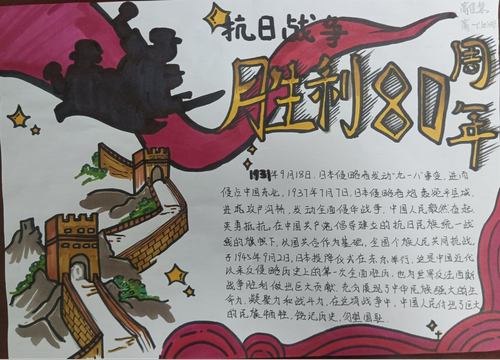 抗日战争
胜利80周年
1931年9月18日,日本侵略者发动"九一八"事变,进而
侵占中国东北。1937年7月7日,日本侵略者炮轰宛平县城,
进攻卢沟桥,发动全面侵华战争。中国人民毅然奋起,
英勇抵抗。在中国共产党倡导建立的抗日民族统一战
线的旗帜下,以国共合作为基础,全国各族人民共同抗战。
于1945年9月2日,日本投降仪式在东京举行,这是中国近代
以来反侵略历史上的第一次全面胜历,也为世界反法西斯
战争胜利做出巨大贡献,充分展现了中华民族强大的生
命力,凝聚力和战斗力。在这场战争中,中国人民付出了巨大
的民族牺牲,铭记历史,勿忘国耻。